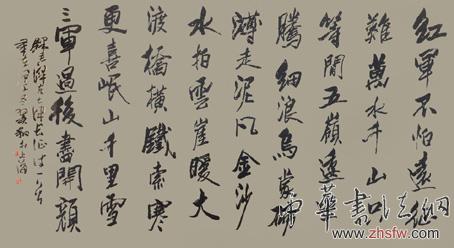 紅軍不怕遠征
難萬水千山只
等閒五嶺逶
騰細浪烏蒙磅
礴走泥丸金沙
水拍雲崖暖大
渡橋橫鐵索寒
更喜岷山千里雪
三軍過後盡開顏
華書法網
www.zhsfw.com